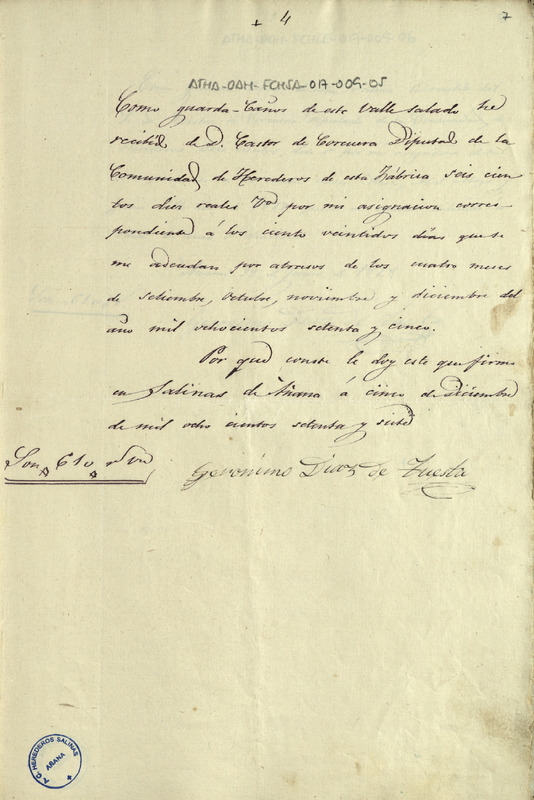 + 4
7
ATHA-DAH-FCHSA-017-009-05
Como guarda-Caños de este Valle salado he
recibido de D. Castor de Corcuera Diputado de la
Comunidad de Herederos de esta Fábrica seis cien
tos diez reales Von por mi asignacion corres-
pondiente á los ciento veintidos dias que se
me adeudan por atrasos de los cuatro meses
de setiembre, Octubre, noviembre y diciembre del
año mil ochocientos setenta y cinco.
Por que conste le doy este que firmo
en Salinas de Añana á cinco de diciembre
de mil ocho cientos setenta y siete
Son 610 rs vn
Geronimo Diaz de Tuesta
A.C. HEREDEROS SALINAS
AÑANA